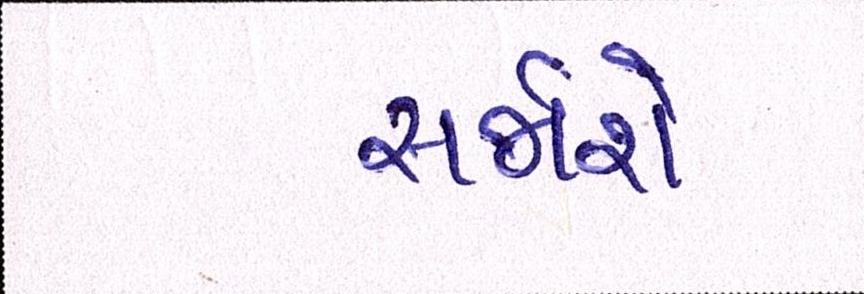 સર્જાશે